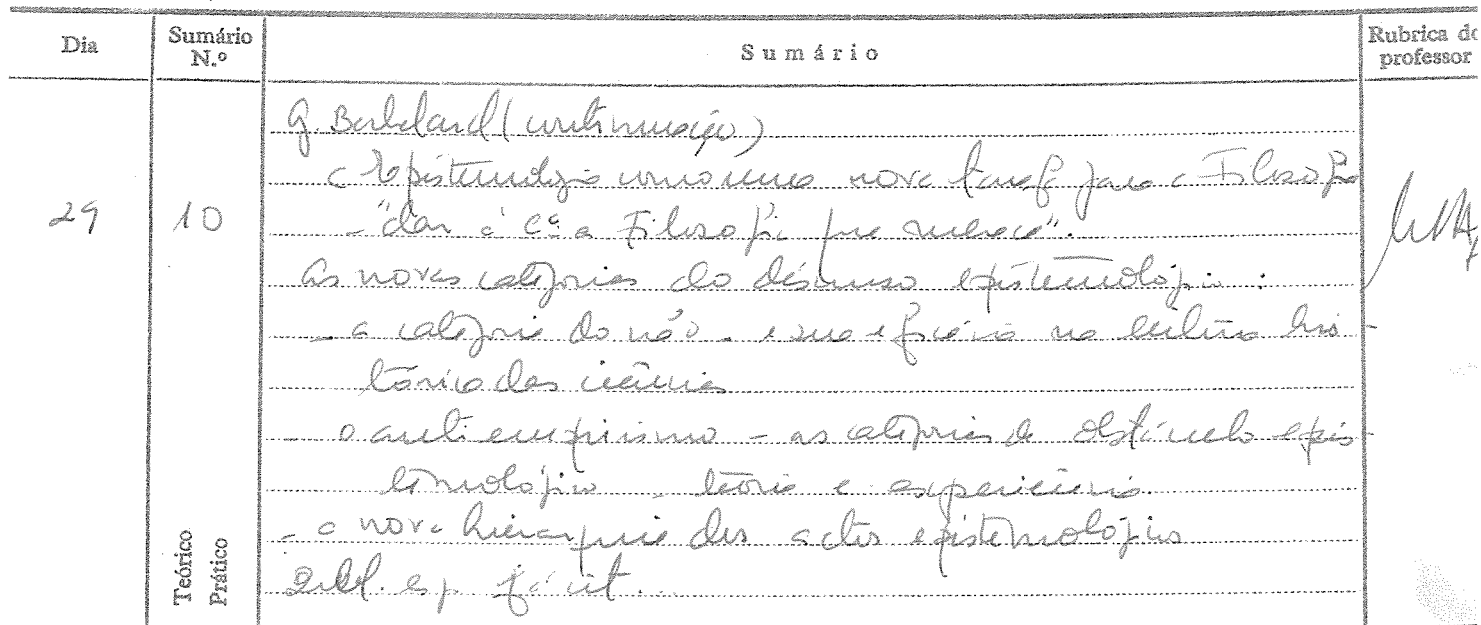 Dia
Sumário N.º
Sumário
Rubrica do professor
29
10
G. Bachelard (continuação)
a Epistemologia como uma nova tarefa para a Filosofia
- "dar à Cª a Filosofia que merece".
As novas categorias do discurso epistemológico:
- a categoria do não - e sua eficácia na leitura his-
tórica das ciências
- o anti empirismo - as categorias de obstáculo epis-
temológico, teoria e experiência.
- a nova hierarquia dos actos epistemológicos
Bibl. esp. já cit.
Teórico
Prático